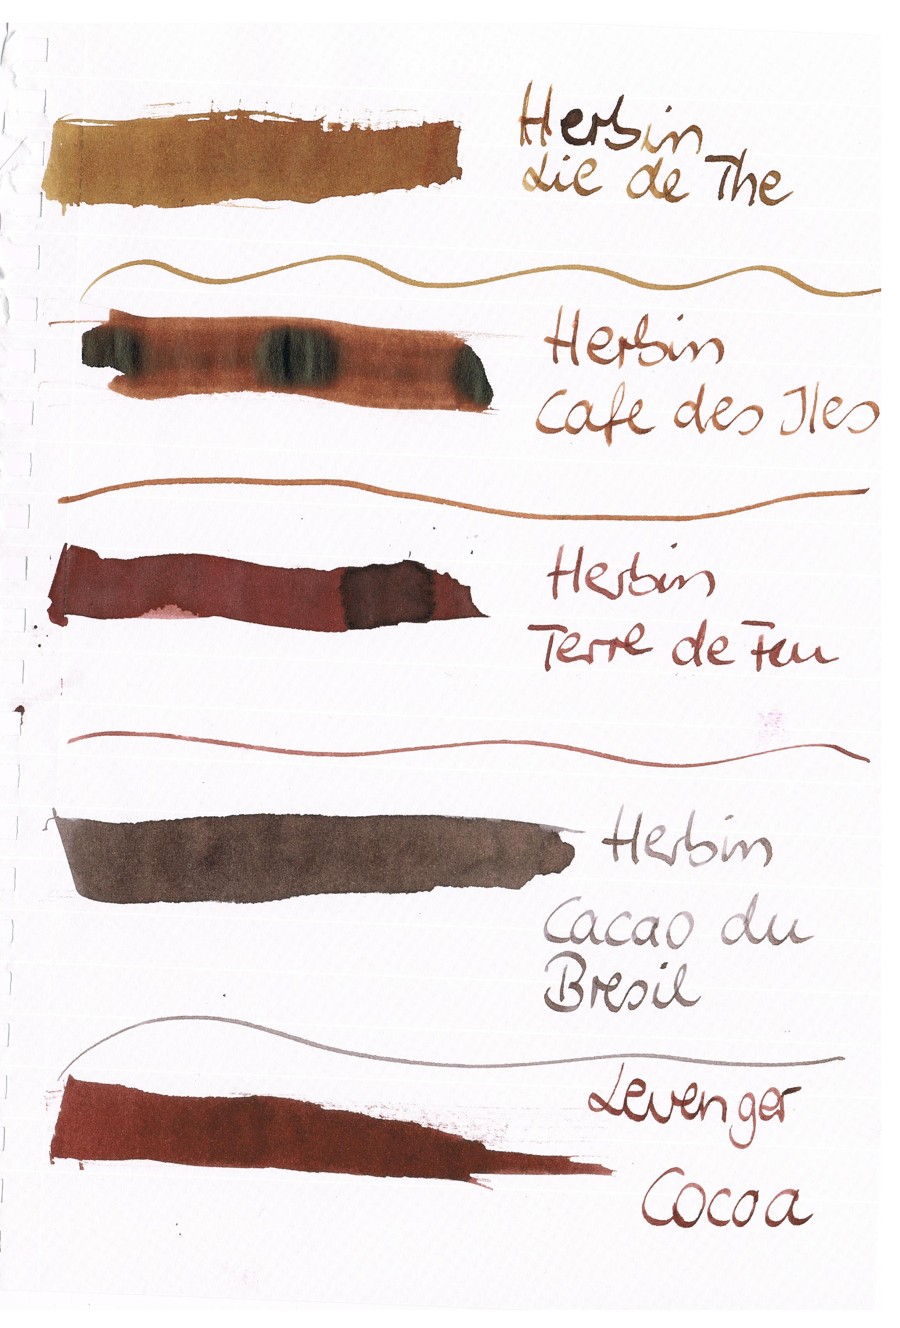 Herbin
Lie de The
Herbin
Cafe des Iles
Herbin
Terre de Feu
Herbin
Cacao du
Bresil
Levenger
Cocoa